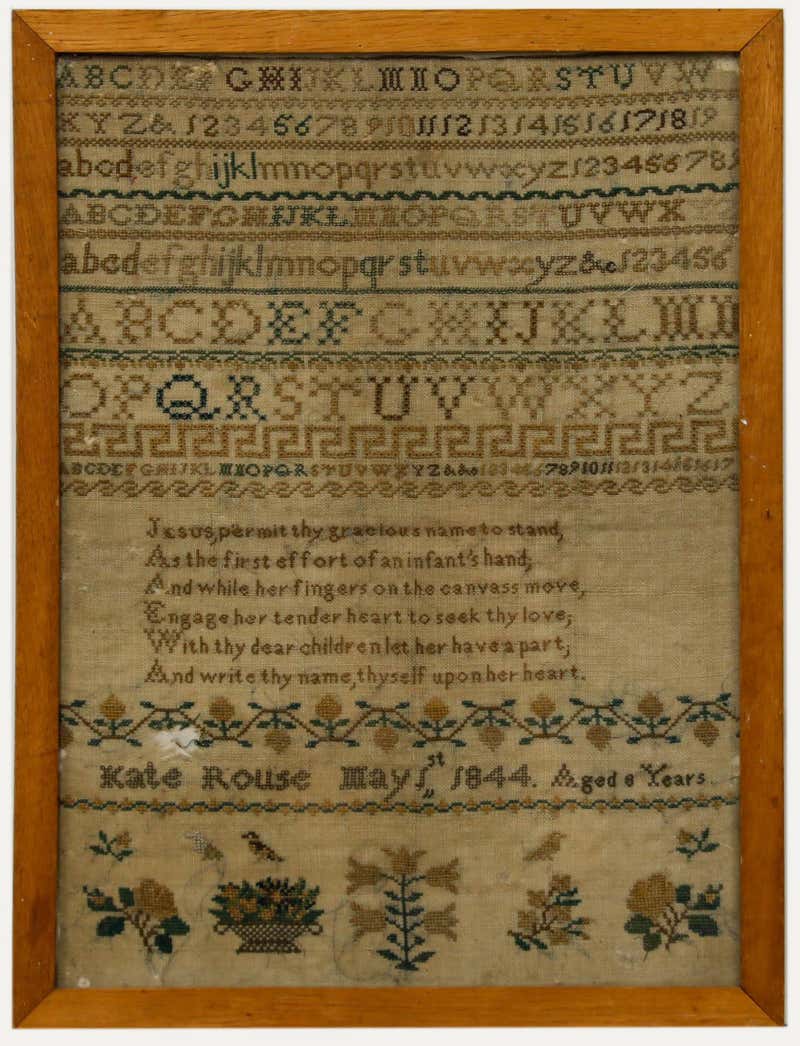 A B C D E F G H I J K L M N O P Q R S T U V W
X Y Z & 1 2 3 4 5 6 7 8 9 10 11 12 13 14 15 16 17 18 19
a b c d e f g h i j k l m n o p q r s t u v w x y z 1 2 3 4 5 6 7 8 9
A B C D E F G H I J K L M N O P Q R S T U V W X
a b c d e f g h i j k l m n o p q r s t u v w x y z & c 1 2 3 4 5 6
A B C D E F G H I J K L M N
O P Q R S T U V W X Y Z
A B C D E F G H I J K L M N O P Q R S T U V W X Y Z & & c 1 2 3 4 5 6 7 8 9 10 11 12 13 14 15 16 17
Jesus, permit thy gracious name to stand,
As the first effort of an infant's hand;
And while her fingers on the canvass move,
Engage her tender heart to seek thy love;
With thy dear children let her have a part,
And write thy name, thyself upon her heart.
Kate Rouse May 1st 1844. Aged 8 Years